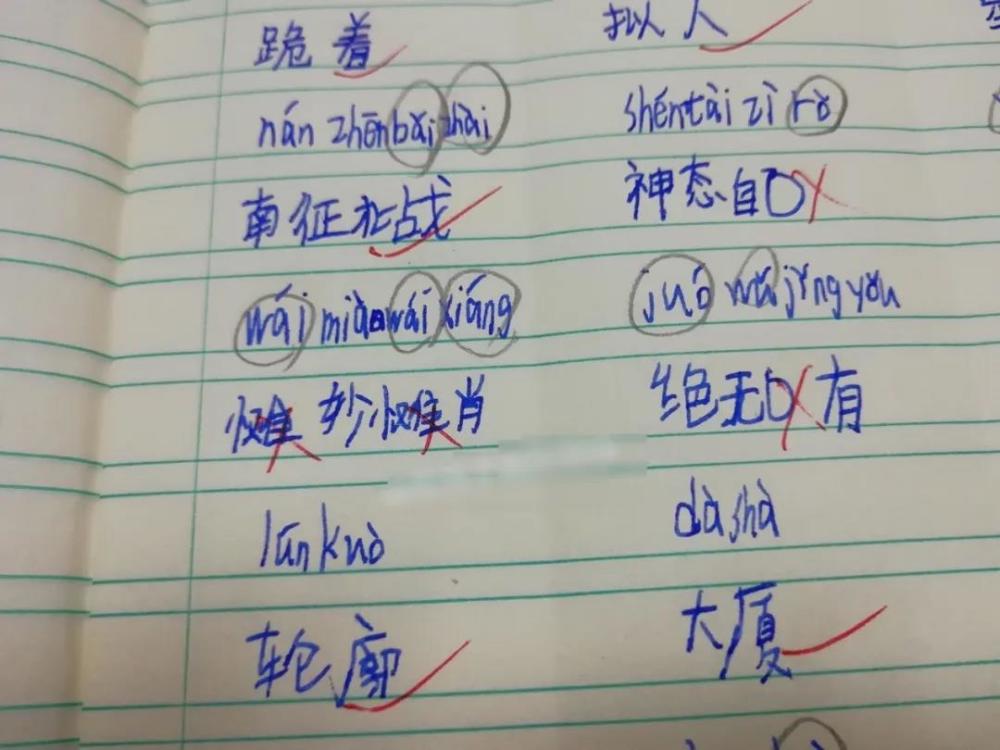 跪着 拟人
nán zhēn bǎi zhài shéntài zì rò
南征北战 神态自口
wái miào wái xiáng juó wú jǐng yǒu
妙 肖 绝无口有
lún kuò dà shà
轮廓 大厦